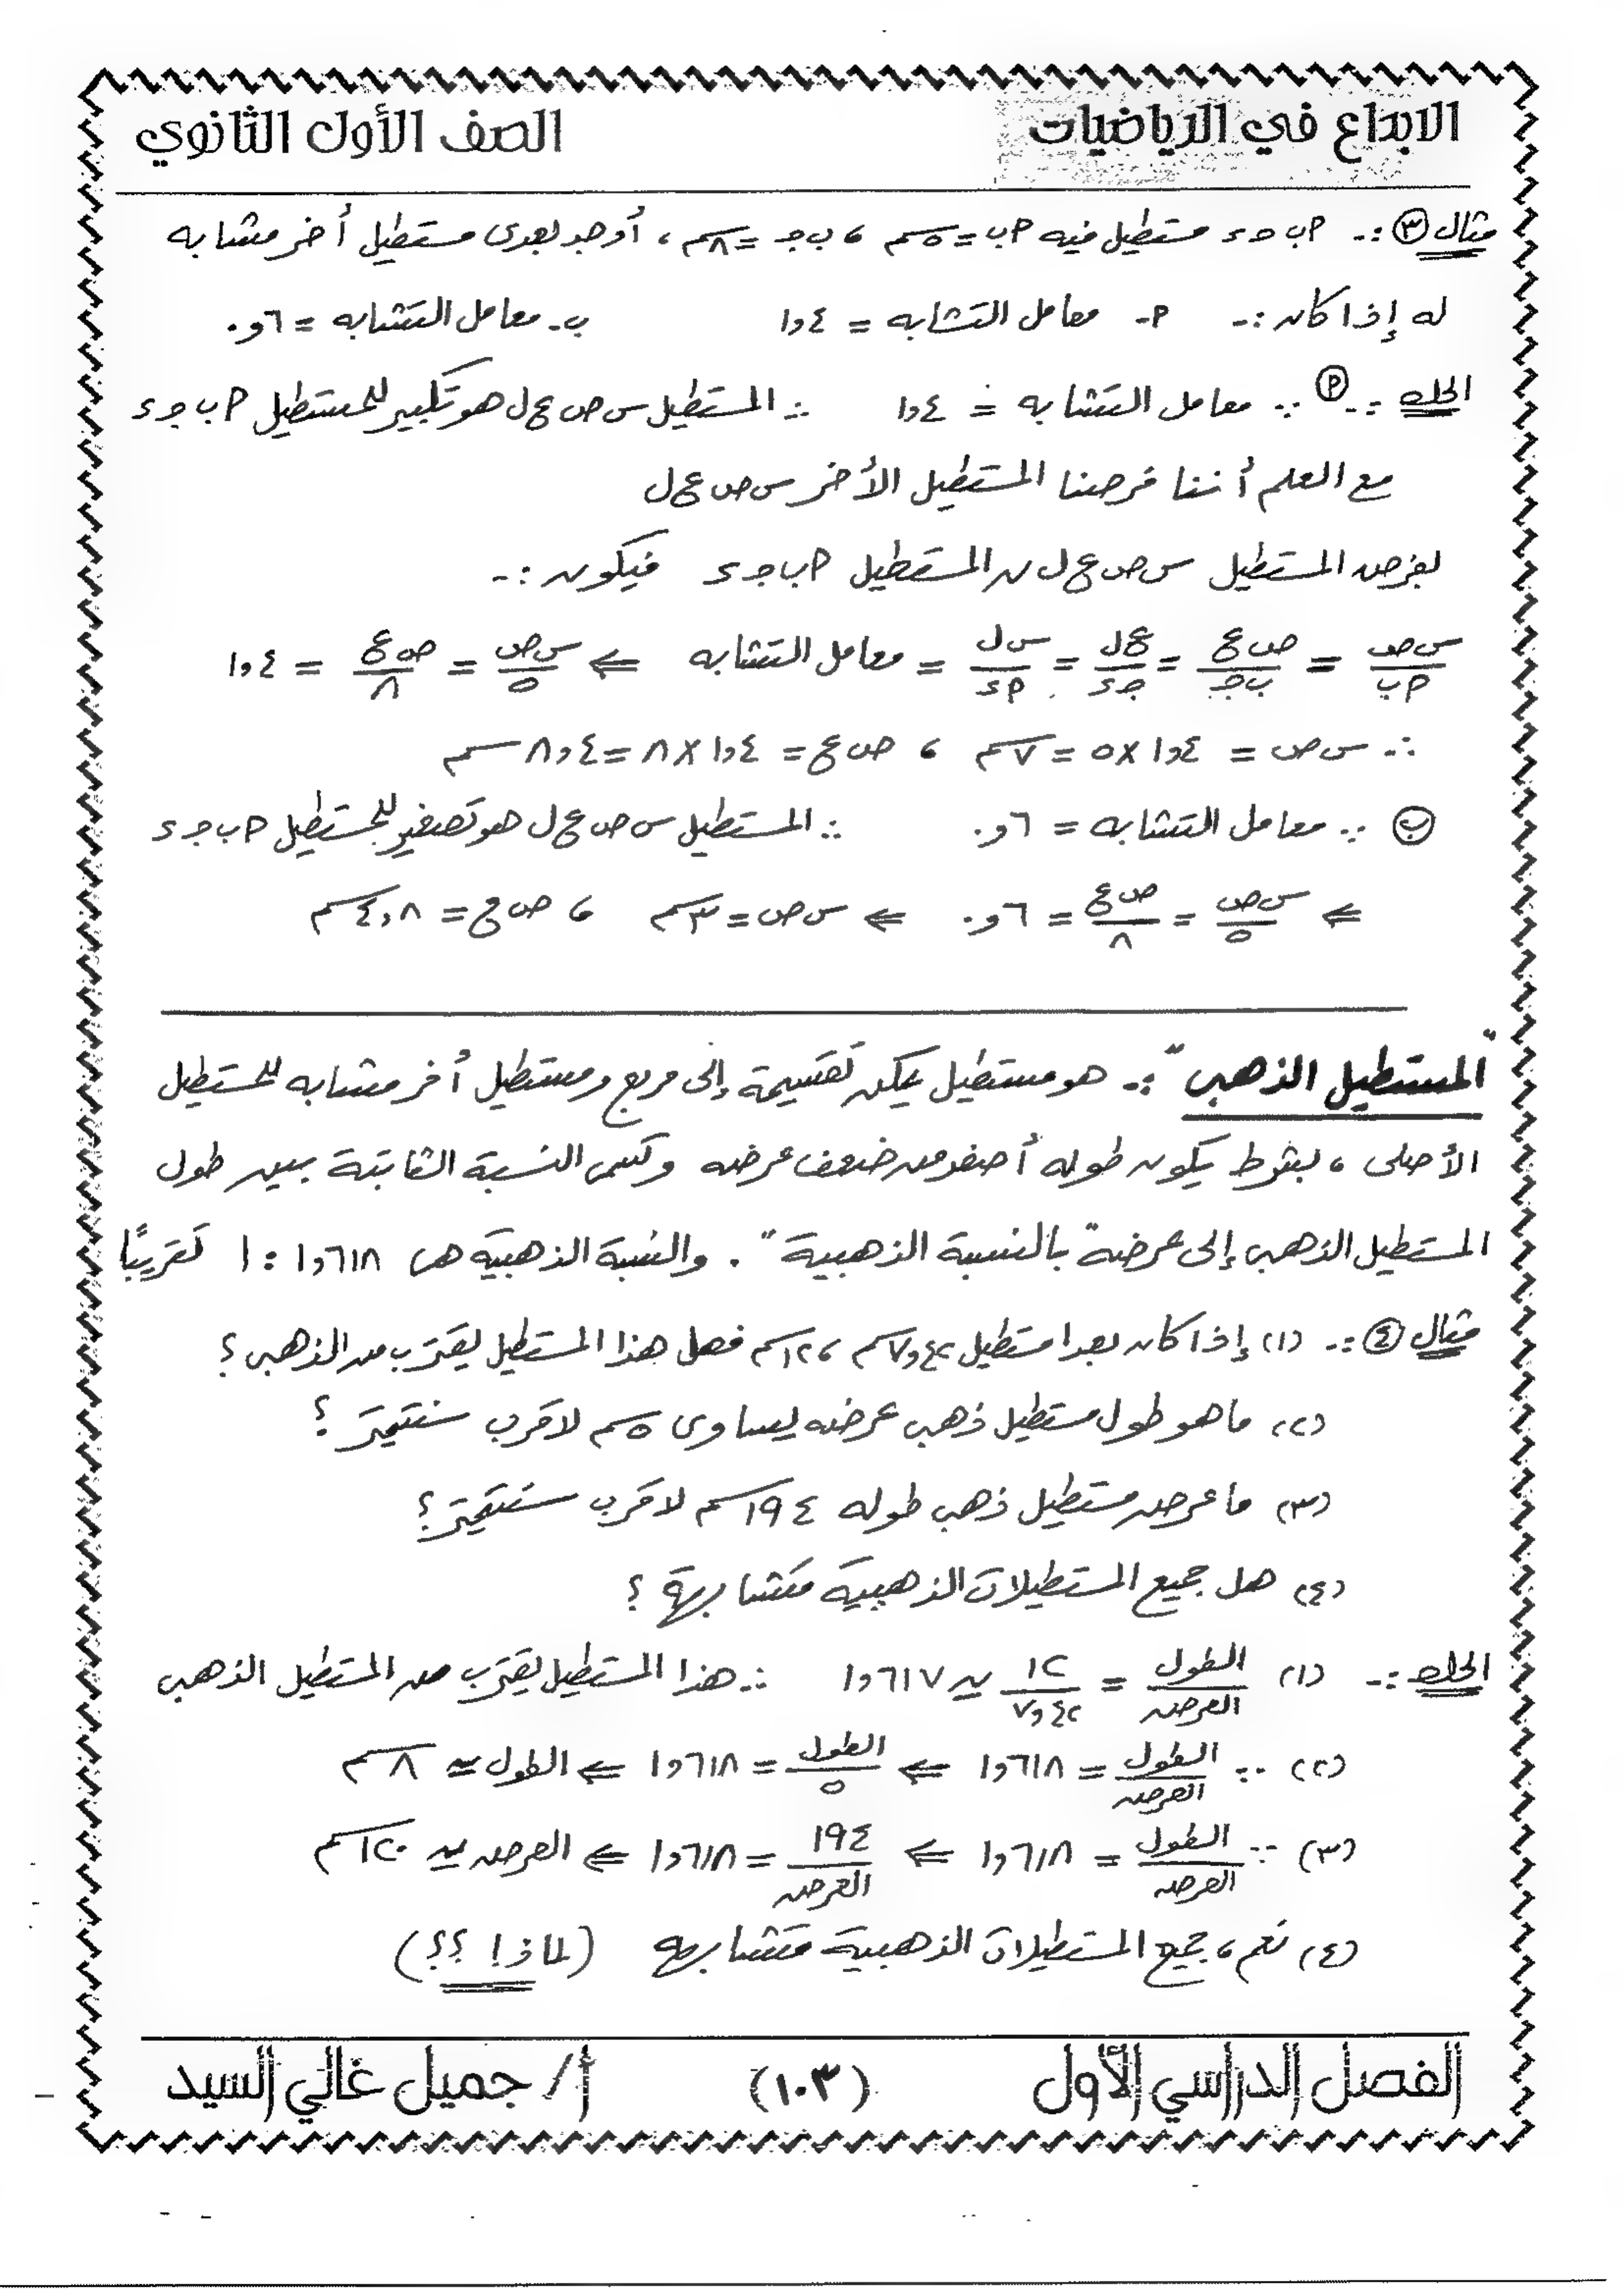 الابداع في الرياضيات
الصف الأول الثانوي
مثال (٣) :- أ ب جـ د مستطيل فيه أ ب = ٥ سم ، ب جـ = ٨ سم ، أوجد بعدى مستطيل أخر مشابه
له إذا كان :- أ- معامل التشابه = ١,٤ ب- معامل التشابه = ٠,٦
الحل :- (أ) ∵ معامل التشابه = ١,٤ ∴ المستطيل س ص ع ل هو تكبير للمستطيل أ ب جـ د
مع العلم أننا فرضنا المستطيل الأخر س ص ع ل
بفرض المستطيل س ص ع ل ~ المستطيل أ ب جـ د فيكون :-
س ص / أ ب = ص ع / ب جـ = ع ل / جـ د = س ل / أ د = معامل التشابه ⇐ س ص / ٥ = ص ع / ٨ = ١,٤
∴ س ص = ١,٤ × ٥ = ٧ سم ، ص ع = ١,٤ × ٨ = ٨,٤ سم
(ب) ∵ معامل التشابه = ٠,٦ ∴ المستطيل س ص ع ل هو تصغير للمستطيل أ ب جـ د
⇐ س ص / ٥ = ص ع / ٨ = ٠,٦ ⇐ س ص = ٣ سم ، ص ع = ٤,٨ سم
"المستطيل الذهبى" :- هو مستطيل يمكن تقسيمة إلى مربع ومستطيل أخر مشابه للمستطيل
الأصلى ، بشرط يكون طوله أصغر من ضعف عرضه وتسمى النسبة الثابتة بين طول
المستطيل الذهبى إلى عرضة "بالنسبة الذهبية" . والنسبة الذهبية هى ١,٦١٨ : ١ تقريبًا
مثال (٤) :- (١) إذا كان بعدا مستطيل ٧,٤٢ سم ، ١٢ سم فهل هذا المستطيل يقترب من الذهبى ؟
(٢) ما هو طول مستطيل ذهبى عرضه يساوى ٥ سم لاقرب سنتيمتر ؟
(٣) ما عرض مستطيل ذهبى طوله ١٩٤ سم لاقرب سنتيمتر ؟
(٤) هل جميع المستطيلات الذهبية متشابهة ؟
الحل :- (١) الطول / العرض = ١٢ / ٧,٤٢ ≃ ١,٦١٧ ∴ هذا المستطيل يقترب من المستطيل الذهبى
(٢) ∵ الطول / العرض = ١,٦١٨ ⇐ الطول / ٥ = ١,٦١٨ ⇐ الطول ≃ ٨ سم
(٣) ∵ الطول / العرض = ١,٦١٨ ⇐ ١٩٤ / العرض = ١,٦١٨ ⇐ العرض ≃ ١٢٠ سم
(٤) نعم ، جميع المستطيلات الذهبية متشابهه (لماذا ؟؟)
الفصل الدراسي الأول
(١٠٣)
أ / جميل غالي السيد